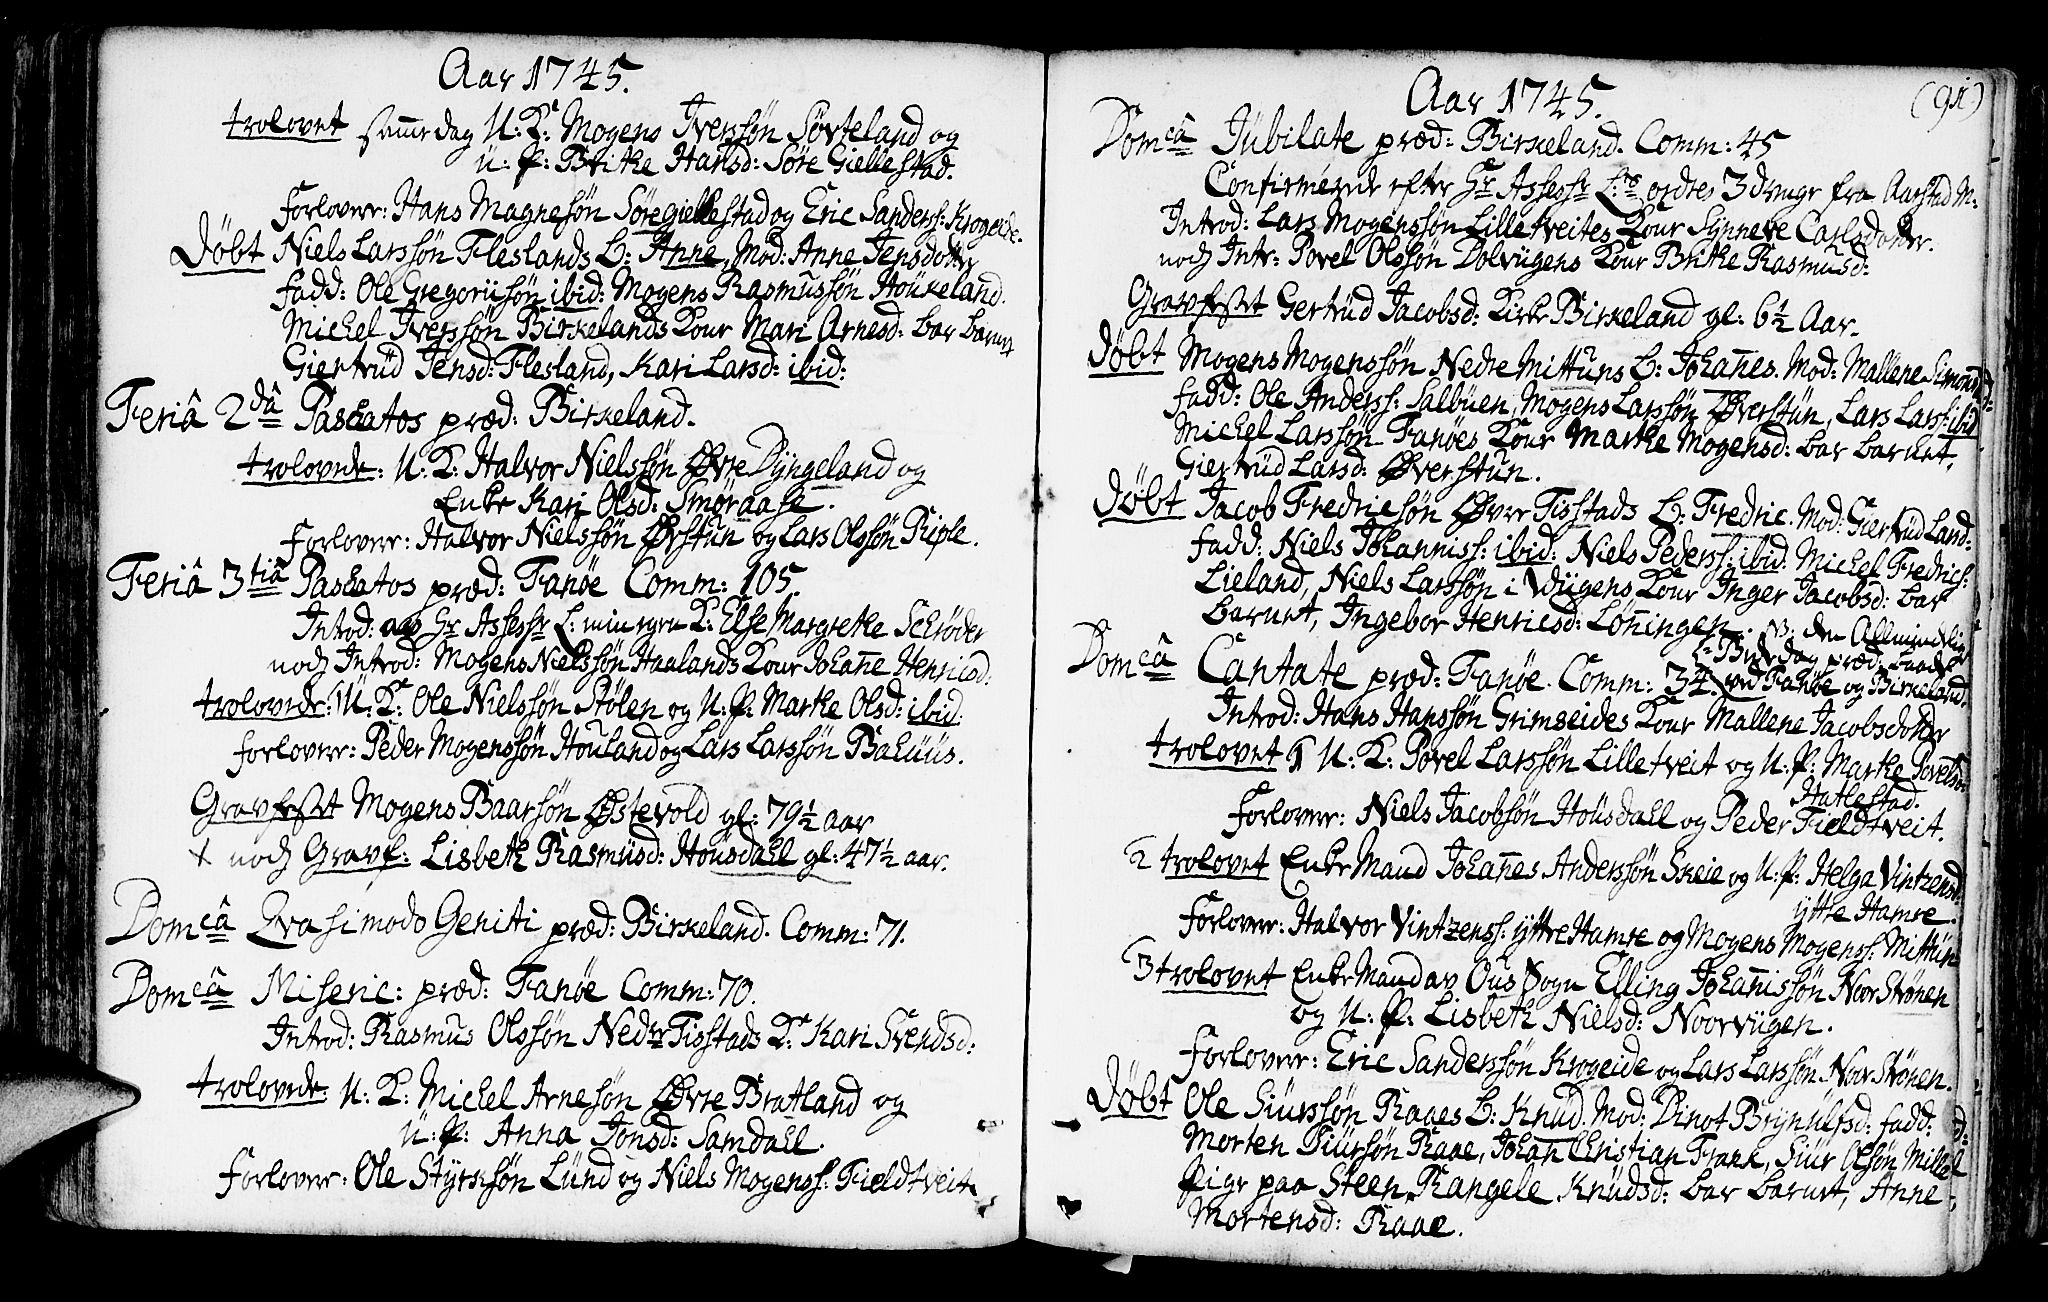 Aar 1745.
trolovet samme dag U: K: Mogens Iverssøn Søvteland og
U: P: Brithe Hansd: Søre Giellestad.
Forlovere: Hans Magnesøn Søregiellestad og Eric Sanders: Krogeide.
Døbt Niels Larssøn Fleslands B: Anne, Mod: Anne Jensdotter
Fadd: Ole Gregoriisøn ibid: Mogens Rasmussøn Houkeland.
Michel Iverssøn Birkelands Kone Mari Arnesd: bar barnet
Giertrüd Jensd: Flesland, Kari Larsd: ibid:
Feriâ 2dâ Paschatos præd: Birkeland.
trolovede: U: K: Halvor Nielssøn Øvre Dyngeland og
Enke Kari Olsd: Smøraase.
Forlovere: Halvor Nielssøn Øvstün og Lars Olssøn Riple.
Feriâ 3tiâ Paschatos præd: Fanøe Comm: 105.
Introd: Hr Assessr L: min egen K: Else Margrethe Schrøder
noch Introd: Mogens Nielssøn Haalands Kone Johanne Henricsd:
trolovede: U: K: Ole Nielssøn Stølen og U: P: Marthe Olsd: ibid.
Forlovere: Peder Mogenssøn Houland og Lars Larssøn Bahüüs.
Gravfæstet Mogens Baarsøn Østevold gl: 79½ aar
+ noch Gravf: Lisbeth Rasmüsd: Housdahl gl: 47½ aar.
Domcâ Qvasimodo Geniti præd: Birkeland. Comm: 71.
Domcâ Miseric: præd: Fanøe Comm: 70.
Introd: Rasmus Olssøn Nedre Tisstads K: Kari Svendsd:
trolovede: U: K: Michel Arnesøn Øvre Bratland og
U: P: Anna Jonsd: Samdahl.
Forlovere: Ole Styrchsøn Lünd og Niels Mogenss: Fieldtveit
Aar 1745. (91)
Domcâ Jübilate præd: Birkeland. Comm: 45
Confirmerede efter Hr Assessr L: ordres 3 drenge fra Aarstad M:
Introd: Lars Mogenssøn Lilletveites Kone Synneve Carlsdotter.
noch Intr: Povel Olssøn Dolvügens Kone Brithe Rasmusd:
Gravfæstet Gertrüd Jacobsd: Kirke Birkeland gl: 6½ Aar.
Døbt Mogens Mogenssøn Nedre Mittuns B: Johanes. Mod: Mallene Simonsd:
Fadd: Ole Anderss: Salbüen, Mogens Larssøn Øverstün, Lars Larss: ibid
Michel Larssøn Fanøes Kone Marthe Mogensd: bar barnet,
Giertrüd Larsd: Øverstun.
Døbt Jacob Fredricsøn Øvre Tisstads B: Fredric. Mod: Giertrüd Land:
Fadd: Niels Johanniss: ibid: Niels Pederss: ibid. Michel Fredrics:
Lieland, Niels Larssøn i Vügens Kone Inger Jacobsd: bar
barnet, Ingebor Henricsd: Løningen. NB: den Allmindelig
B: Bededag præd: baade
ved Fanøe og Birkeland.
Domcâ Cantate præd: Fanøe. Comm: 34.
Introd: Hans Hanssøn Grimseides Kone Mallene Jacobsdotter
trolovet 1 U: K: Povel Larssøn Lilletveit og U: P: Marthe Povelsd:
Hatlestad.
Forlovere: Niels Jacobsøn Housdahl og Peder Fieldtveit.
2 trolovet Enke Mand Johanes Anderssøn Skeie og U: P: Helga Vintzensd:
ytte Hamre.
Forlovere: Halvor Vintzenss: ytre Hamre og Mogens Mogenss: Mittün
3 trolovet Enke Mand av Ous Sogn Elling Johannissøn Noor Strønen
og U: P: Lisbeth Nielsd: Noorvügen.
Forlovere: Eric Sanderssøn Krogeide og Lars Larssøn Noor Strønen.
Døbt Ole Siurssøn Raaes B: Knud. Mod: Dinot Brynülfsd: Fadd:
Morten Siürsøn Raae, Johan Christian Frank, Siür Olsøn Mildel
Pige paa Steen, Rangele Knüdsd: bar barnet, Anne
Mortensd: Raae.